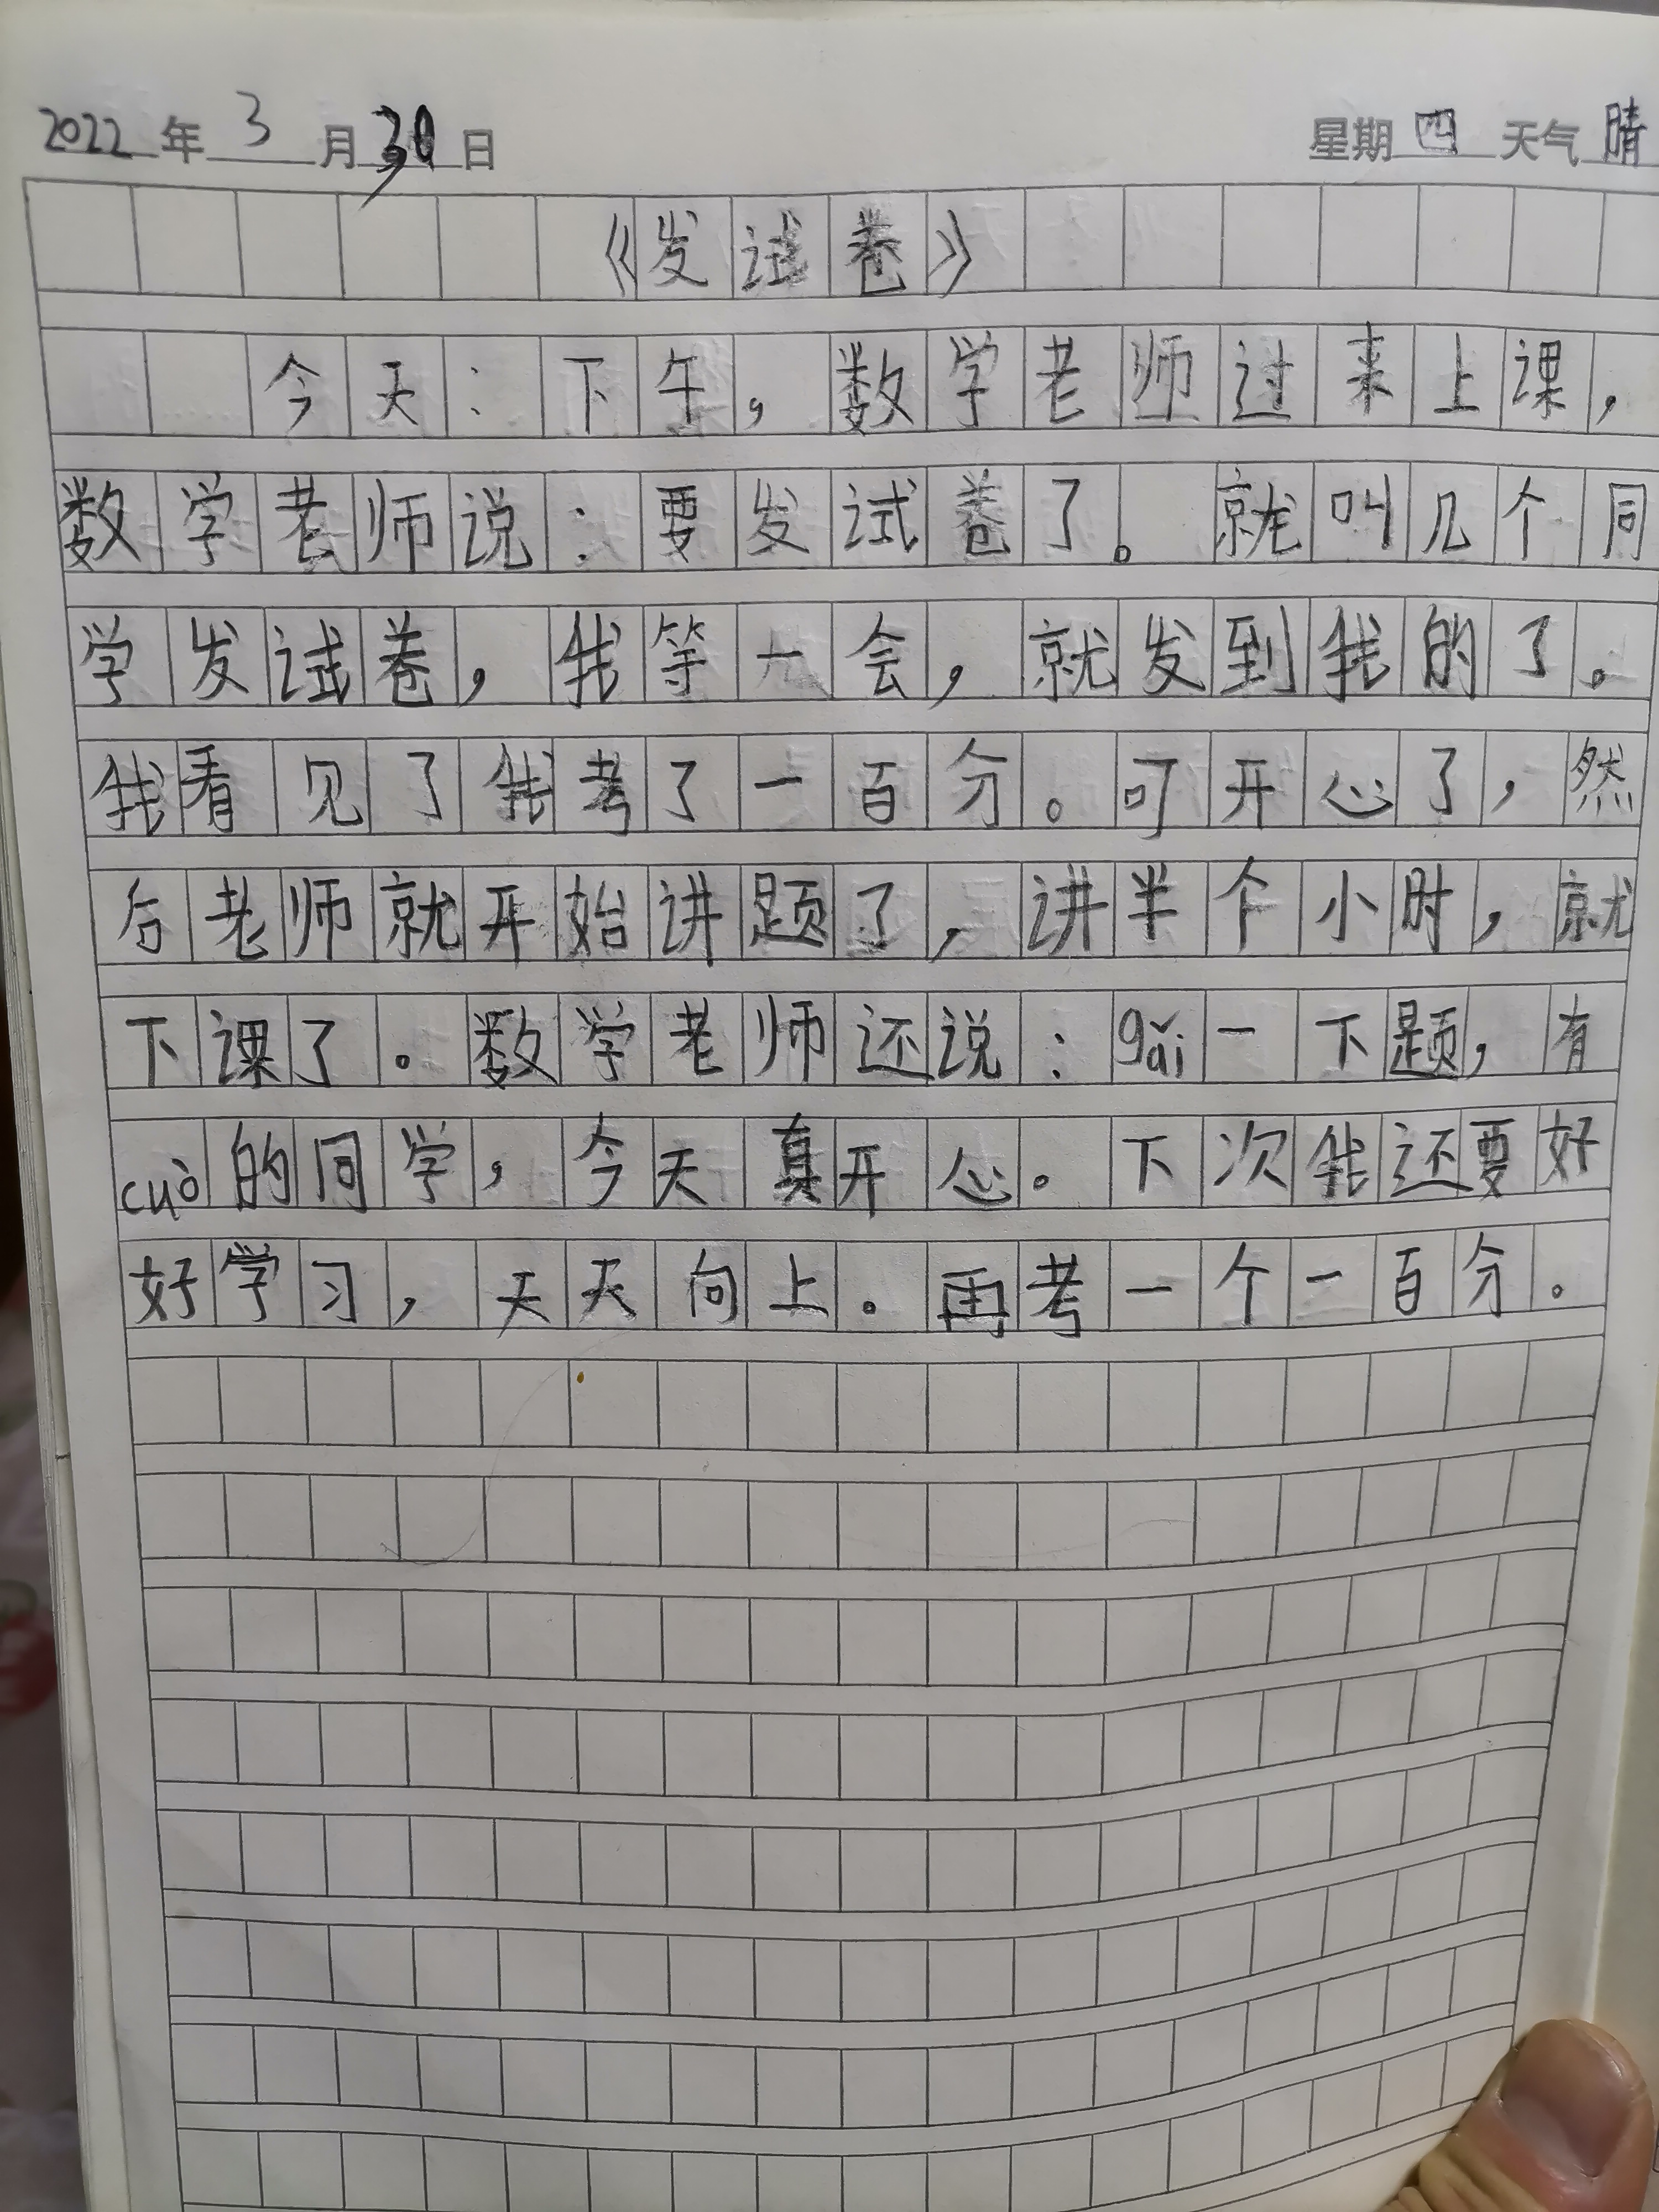 2022年3月30日 星期四 天气晴
《发试卷》
今天：下午，数学老师过来上课，
数学老师说：要发试卷了。就叫几个同
学发试卷，我等一会，就发到我的了。
我看见了我考了一百分。可开心了，然
后老师就开始讲题了，讲半个小时，就
下课了。数学老师还说：gǎi一下题，有
cuò的同学，今天真开心。下次我还要好
好学习，天天向上。再考一个一百分。